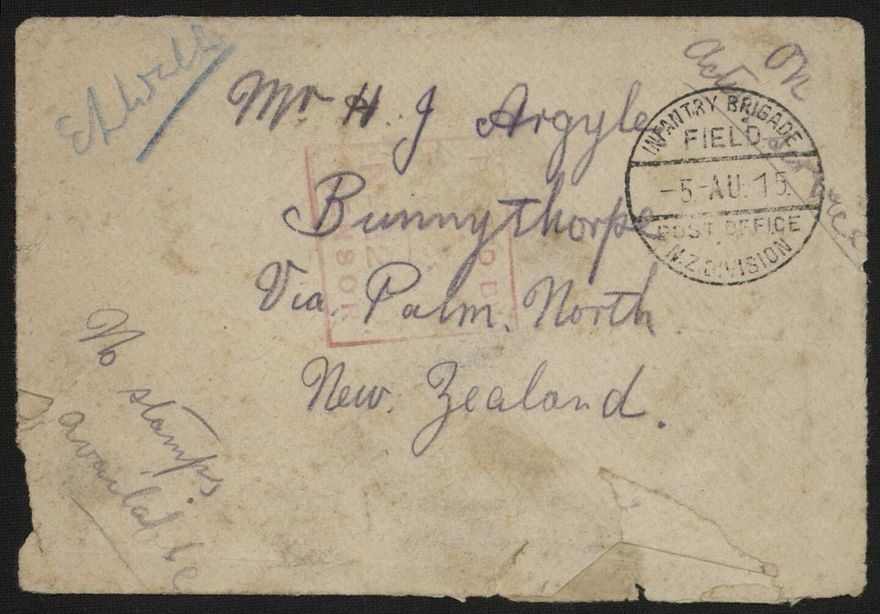 On
Active Service
Mr H. J Argyle
Bunnythorpe
Via. Palm. North
New. Zealand.
No stamps
available
INFANTRY BRIGADE
FIELD
-5.AU.15.
POST OFFICE
N.Z. DIVISION